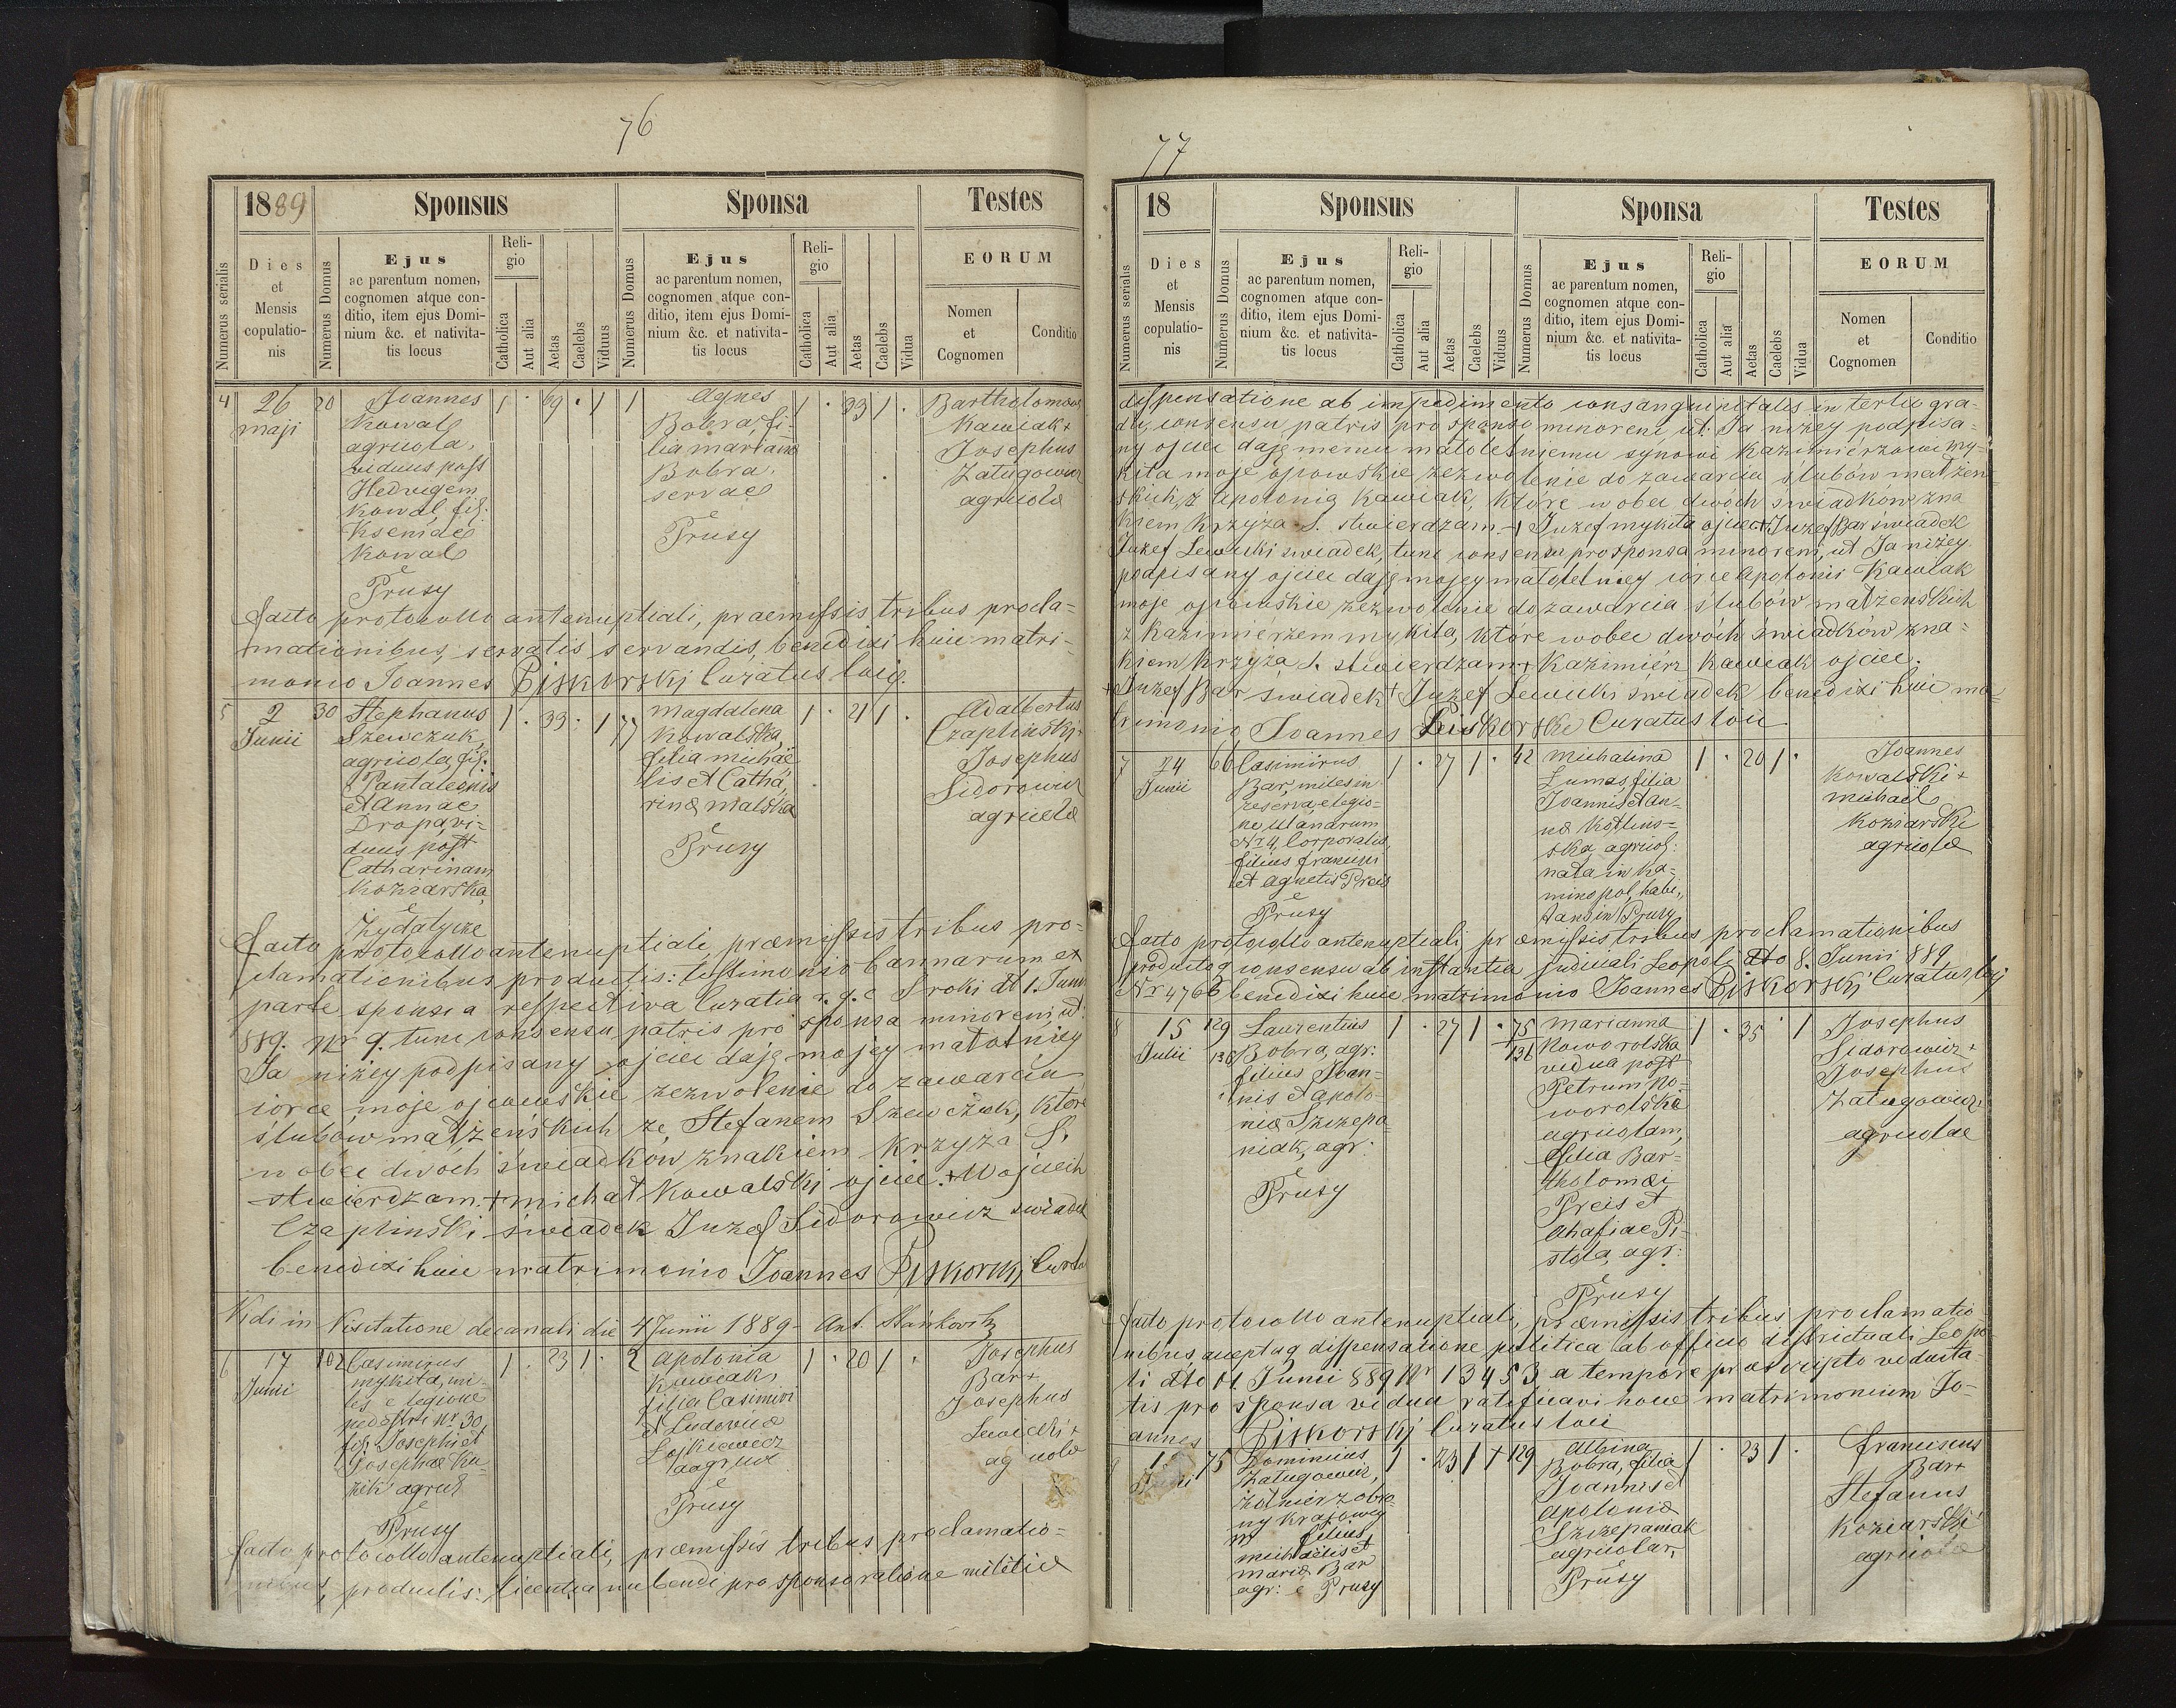 76
1889
Sponsus
Sponsa
Testes
Numerus serialis
Dies
et
Mensis
copulatio-
nis
Numerus Domus
Ejus
ac parentum nomen,
cognomen atque con-
ditio, item ejus Domi-
nium &c. et nativita-
tis locus
Reli-
gio
Catholica
Aut alia
Aetas
Caelebs
Viduus
Numerus Domus
Ejus
ac parentum nomen,
cognomen atque con-
ditio, item ejus Domi-
nium &c. et nativita-
tis locus
Reli-
gio
Catholica
Aut alia
Aetas
Caelebs
Vidua
EORUM
Nomen
et
Cognomen
Conditio
4
26
maji
20
Joannes
Kowal
agricola,
viduus post
Hedvigem
Kowal fil.
Kseniae
Kowal
e
Prusy
1 · 69 · 1
1
Agnes
Bobra, fi-
lia mariannae
Bobra,
servae
e
Prusy
1 · 33 1 ·
Bartholomaeus
Kawiak +
Josephus
Załugowicz
agricolae
facto protocollo antenuptiali, praemissis tribus procla=
mationibus, servatis servandis, benedixi huic matri-
monio Joannes Piskorskj Curatus loci.
5
2
Junii
30
Stephanus
Szewczuk,
agricola, fil.
Pantaleonis
et Annae
Dropa, vi=
duus post
Catharinam
Koziarska,
e
Żydatycze
1 · 33 · 1
77
Magdalena
Kowalska
filia michae
lis et Catha,
rinae Malska
e
Prusy
1 · 21 1 ·
Adalbertus
Czaplinskj +
Josephus
Sidorowicz
agricolae
facto protocollo antenuptiali, praemissis tribus pro-
clamationibus productis: testimonio bannorum ex
parte sponsi a respectiva Curatia r. g. c Sroki dt 1. Junii
889. Nr 9. tunc consensu patris pro sponsa minoreni, ut:
Ja niżey podpisany ojciec daję mojey małoletniey
corce moje ojcowskie zezwolenie do zawarcia
ślubów małżeńskich ze Stefanem Szewczuk, które
wobec dwóch świadków znakiem Krzyża S.
stwierdzam. + michał Kowalskj ojciec. + Wojciech
Czaplinski świadek Juzef Sidorowicz swiadek
benedixi huic matrimonio Joannes Piskorskj Curatus
Vidi in Visitatione decanali die 4 Junii 1889 - Ant. Stańkowitz
6
17
Junii
102
Casimirus
mykita, mi-
les e legione
pedestri Nr 30,
fil. Josephi et
Josephae Ku-
zik agricol
e
Prusy
1 · 23 1 ·
2
Apolonia
Kawiak,
filia Casimiri
et Ludovicae
Łojkiewicz
agricol
e
Prusy
1 · 20 1 ·
Josephus
Bar +
Josephus
Lewicki +
ag colae
facto protocollo antenuptiali, praemissis tribus proclamatio=
nibus, productis: licentia nubendi pro sponso ratione militiae
77
18
Sponsus
Sponsa
Testes
Numerus serialis
Dies
et
Mensis
copulatio-
nis
Numerus Domus
Ejus
ac parentum nomen,
cognomen atque con-
ditio, item ejus Domi-
nium &c. et nativita-
tis locus
Reli-
gio
Catholica
Aut alia
Aetas
Caelebs
Viduus
Numerus Domus
Ejus
ac parentum nomen,
cognomen atque con-
ditio, item ejus Domi-
nium &c. et nativita-
tis locus
Reli-
gio
Catholica
Aut alia
Aetas
Caelebs
Vidua
EORUM
Nomen
et
Cognomen
Conditio
dispensatione ab impedimento consanguinitatis in tertio gra-
du, consensu patris pro sponso minoreni, ut: Ja niżey podpisa=
ny ojciec daję memu małoletniemu synowi Kazimierzowi My=
kita moje ojcowskie zezwolenie do zawarcia ślubów małżeń=
skich z Apolonią Kawiak, które wobec dwóch świadków zna
kiem Krzyża S. stwierdzam + Juzef mykita ojciec + Juzef Bar świadek
Juzef Lewicki swiadek, tunc consensu pro sponsa minoreni, ut Ja niżey
podpisany ojciec daję mojey małoletniey córce Apolonii Kawiak
moje ojcowskie zezwolenie do zawarcia ślubów małżeńskich
z Kazimierzem mykita, które wobec dwóch świadków zna=
kiem Krzyża S. stwierdzam + Kazimierz Kawiak ojciec.
+ Juzef Bar świadek + Juzef Lewicki świadek benedixi huic ma=
trimonio Joannes Piskorski Curatus loci
7
24
Junii
66
Casimirus
Bar, miles in
reserva, e legio=
ne ulanarum
Nr 4, Corporalis,
filius francisci
et Agnetis Preis
e
Prusy
1 · 27 1 ·
42
Michalina
Lumas, filia
Joannis et An-
nae Kotlins=
ska agricol:
nata in Ka=
minopol, habi,
tans in Prusy
1 · 20 1 ·
Joannes
Kowalski +
michael
Koziarski
agricolae
facto protocollo antenuptiali, praemissis tribus proclamationibus
productoq consensu ab instantia judiciali Leopoli dto 8. Junii 889
Nr 4766 benedixi huic matrimonio Joannes Piskorskj Curatus locj
8
15
Julii
129
138
Laurentius
Bobra, agr:
filius Joan=
nis et Apolo-
niae Szczepa
niak, agr:
e
Prusy
1 · 27 1 ·
75
131
Marianna
Noworolska
vidua post
Petrum No-
worolski
agricolam,
filia Bar=
tholomaei
Preis et
Ahafiae Pi-
stola, agr:
e
Prusy
1 · 35 · 1
Josephus
Sidorowicz +
Josephus
Załugowicz
agricolae
facto protocollo antenuptiali, praemissis tribus proclamatio
nibus, acceptaq dispensatione politica ab officio districtuali Leopo=
li dto 11. Junii 889 Nr 13453 a tempore praescripto viduita-
tis pro sponsa vidua ratificavi hocce matrimonium Jo=
annes Piskorskj Curatus loci
75
Dominicus
Załugowicz,
żołnierz obro
ny krajowey
filius
michaelis et
mariae Bar
agr: e Prusy
1 · 23 1 +
129
Albina
Bobra, filia
Joannis et
Apoloniae
Szczepaniak
agricolar,
e
Prusy
1 · 23 1 ·
franciscus
Bar +
Stefanus
Koziarski
agricolae